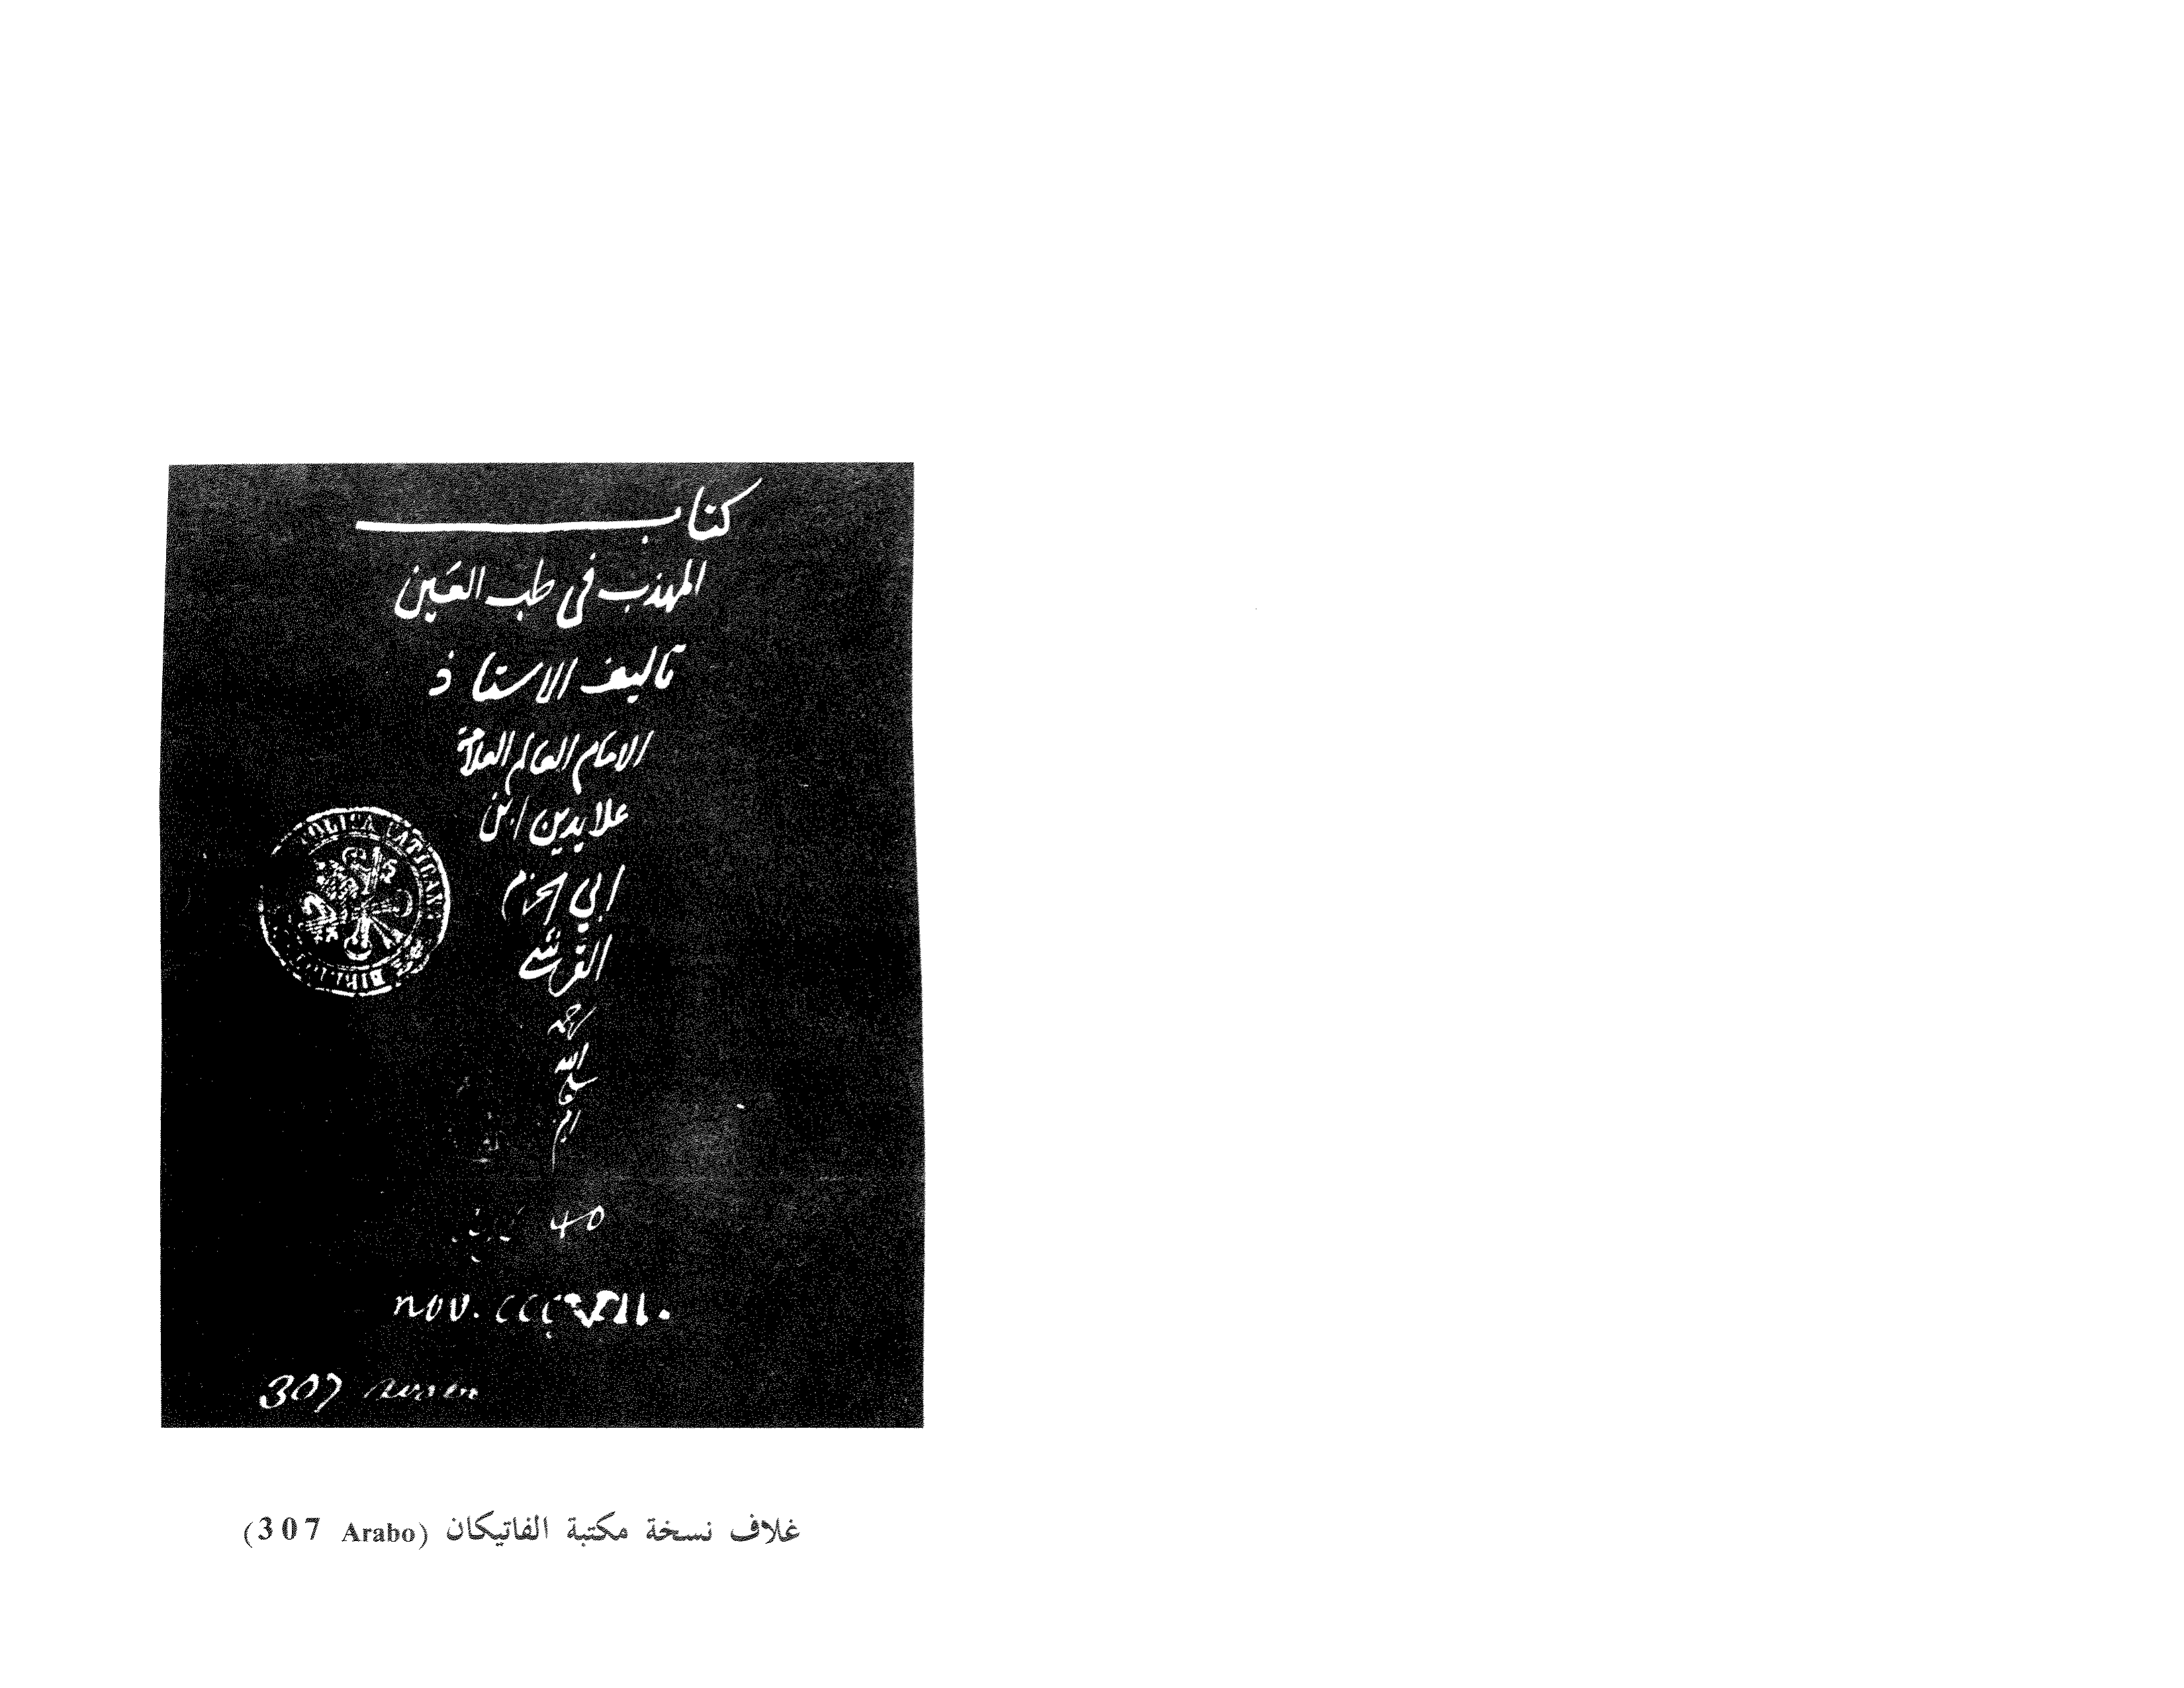 كتاب
المهذب في طب العَين
تاليف الاستاذ
الامام العالم العلامة
علايدين ابن
ابي الحزم
القرشي
رحمه
الله
40
nov. CCCVII.
307
غلاف نسخة مكتبة الفاتيكان (307 Arabo)